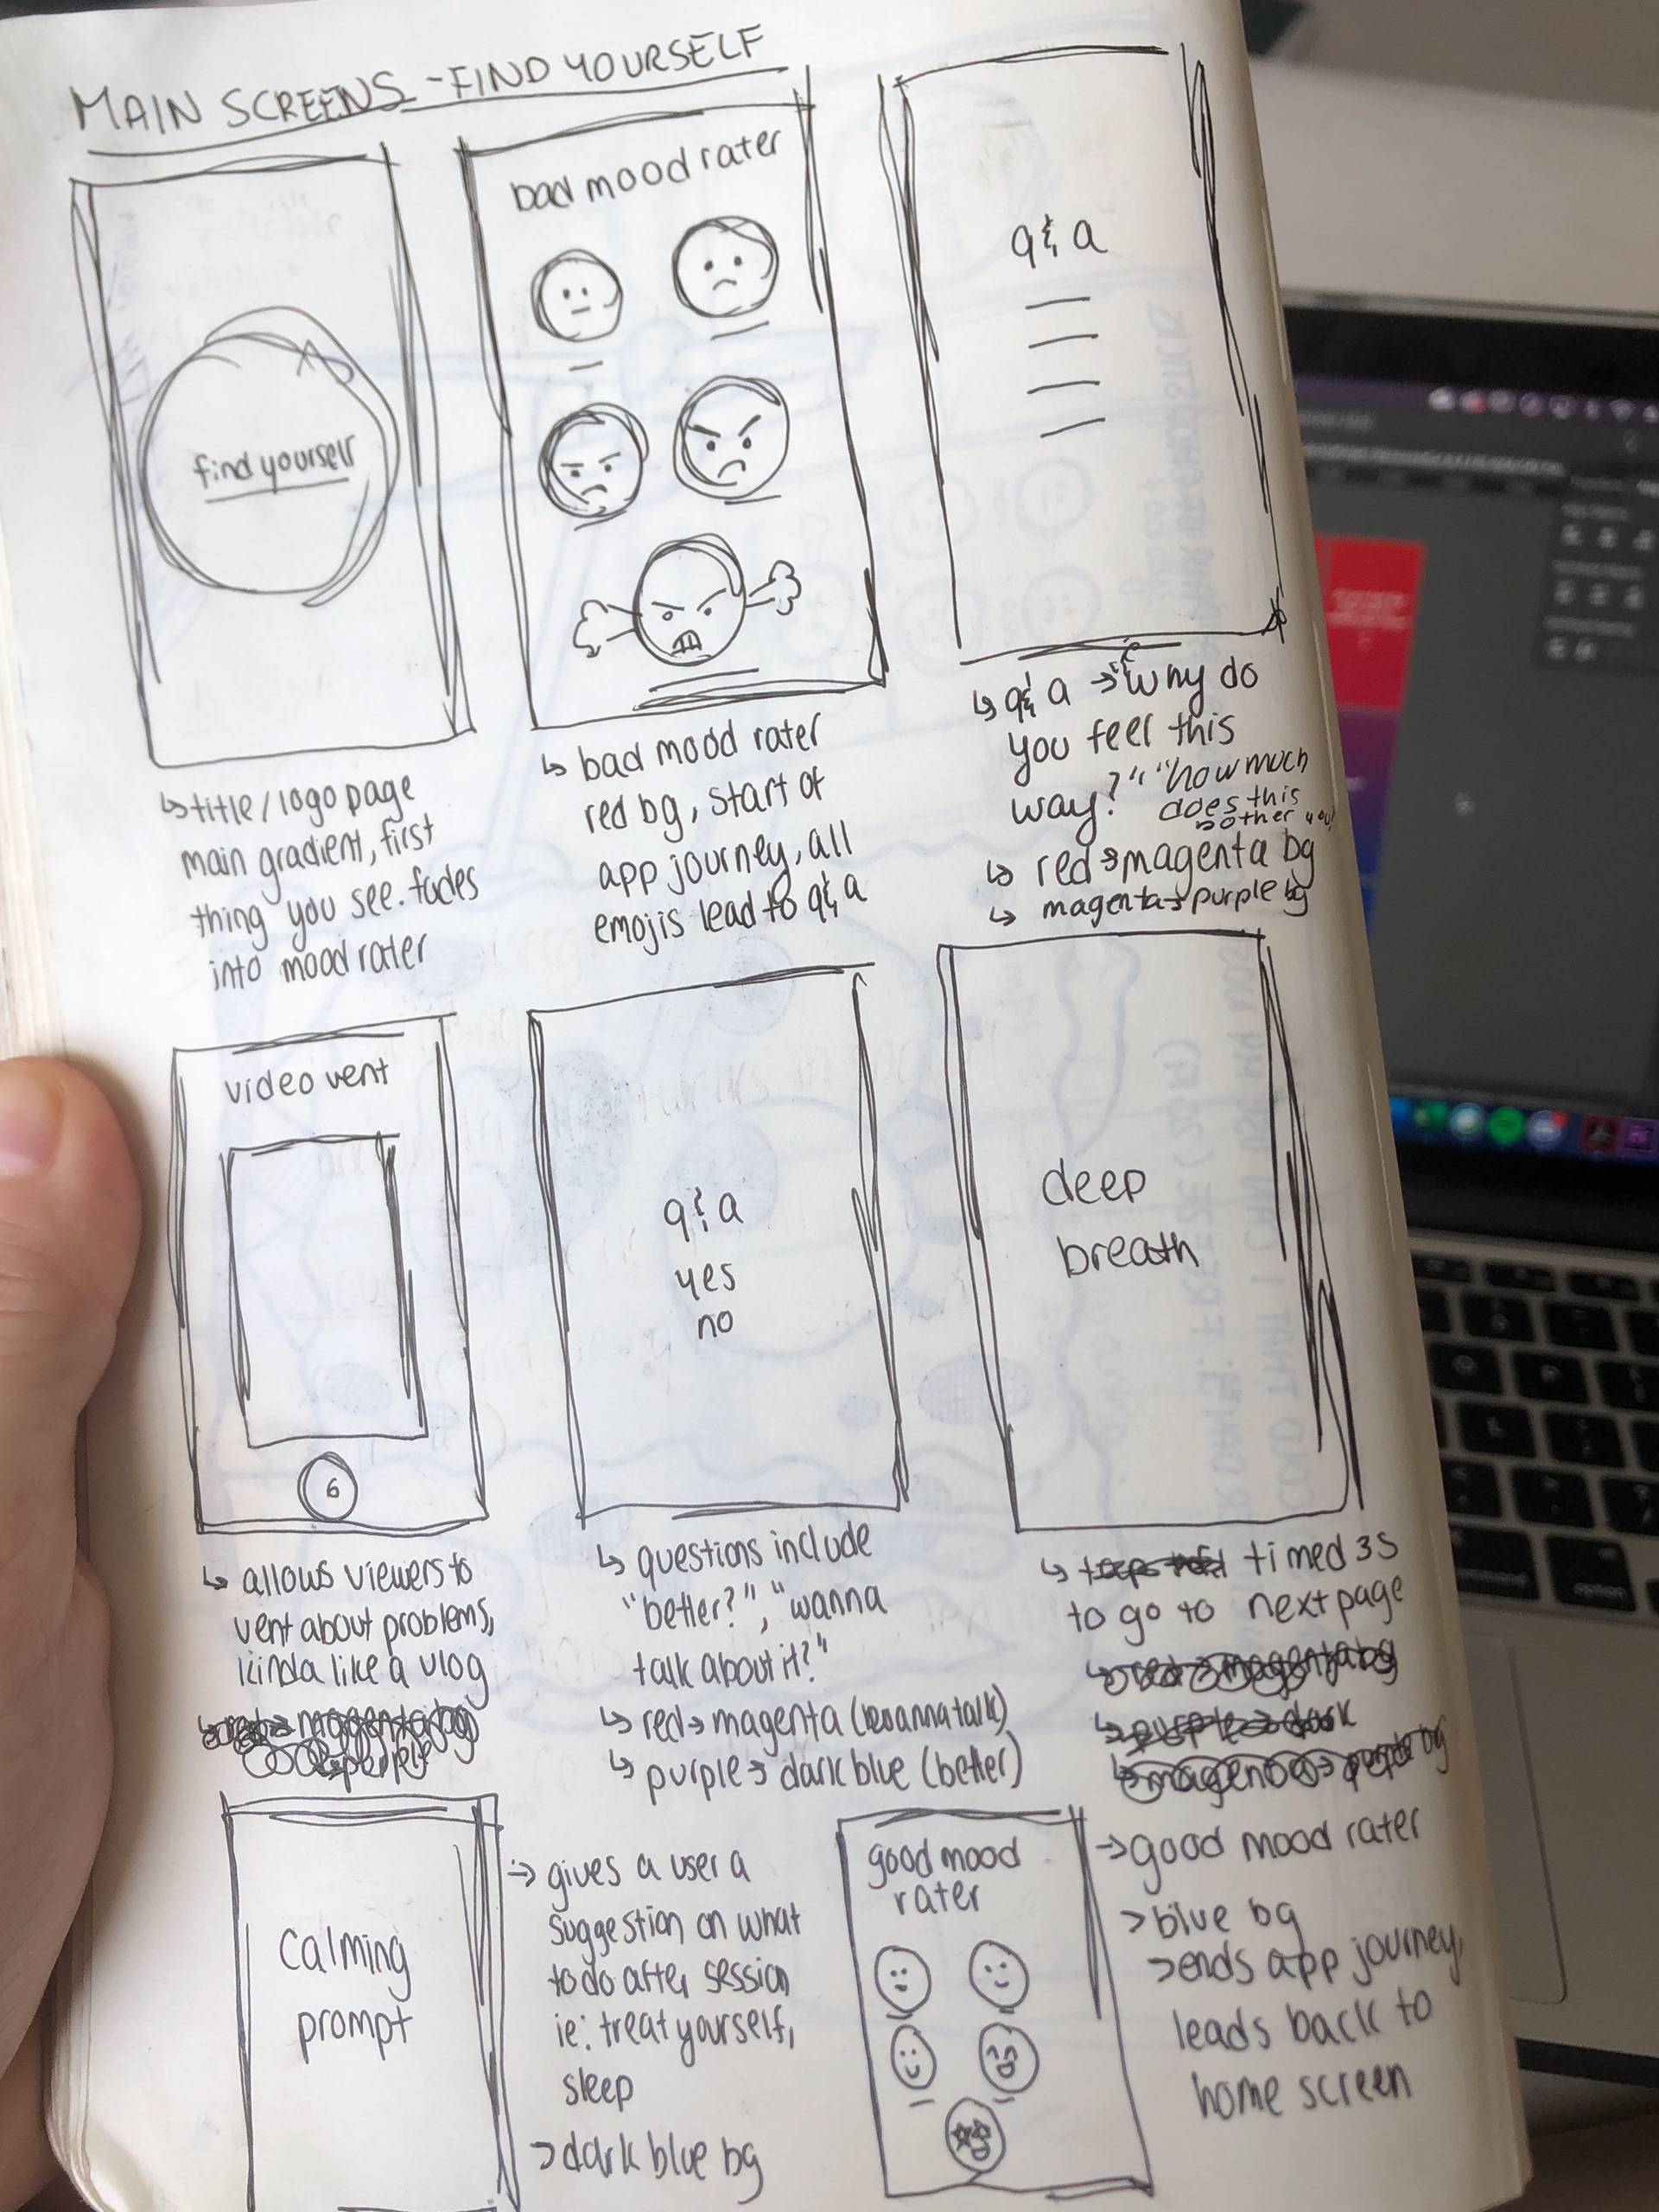 MAIN SCREENS - FIND YOURSELF
find yourself
↳ title/logo page
main gradient, first
thing you see. fades
into mood rater
bad mood rater
↳ bad mood rater
red bg, start of
app journey, all
emojis lead to q&a
q&a
↳ q&a → "why do
you feel this
way?" "how much
does this
bother you
↳ red → magenta bg
↳ magenta → purple bg
video vent
6
↳ allows viewers to
vent about problems,
kinda like a vlog
q&a
yes
no
↳ questions include
"better?", "wanna
talk about it?"
↳ red → magenta (wanna talk)
↳ purple → dark blue (better)
deep
breath
↳ timed 3s
to go to next page
↳ purple → dark
↳ magenta → purple bg
Calming
prompt
→ gives a user a
suggestion on what
to do after session
ie: treat yourself,
sleep
→ dark blue bg
good mood
rater
→ good mood rater
> blue bg
> ends app journey,
leads back to
home screen
option